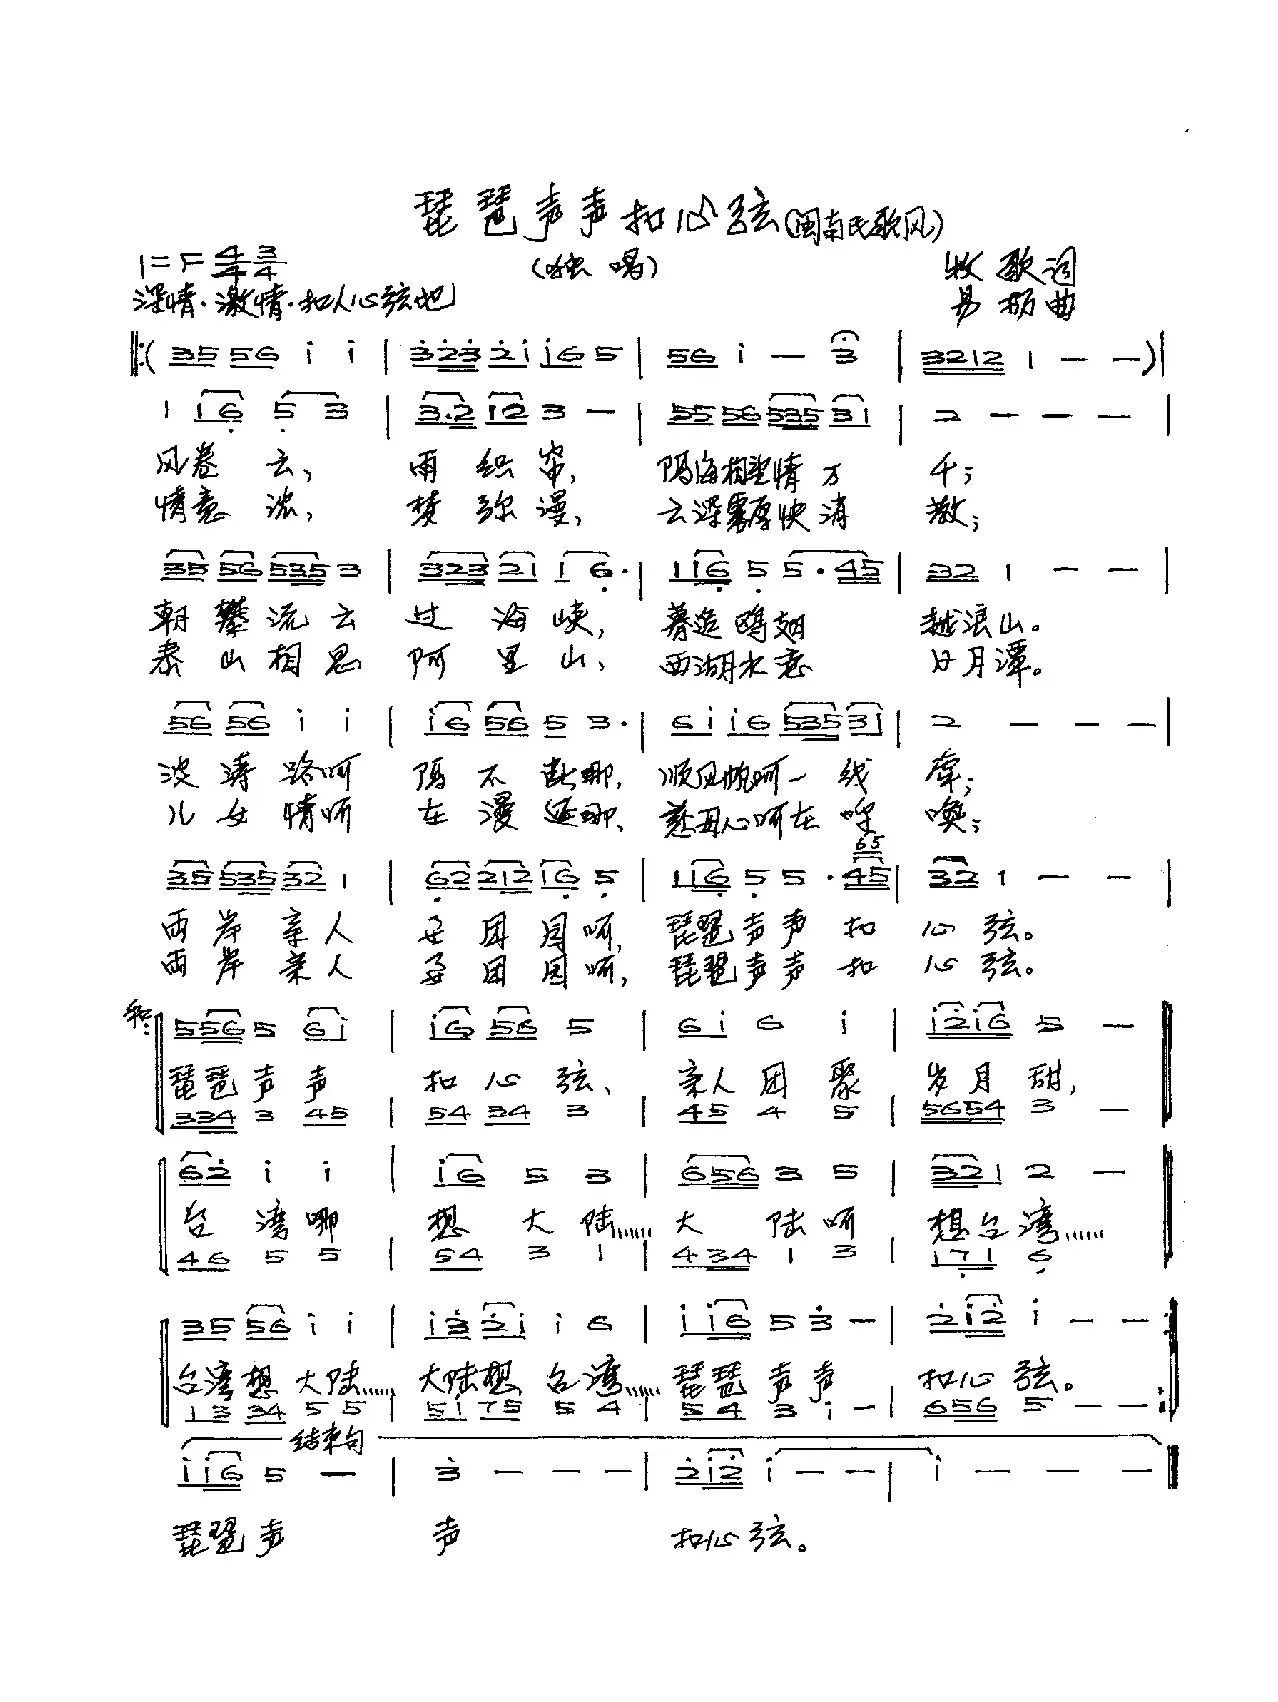 琵琶声声扣心弦(闽南民歌风)
1=F 4/4 3/4 (独唱) 牧歌词
深情·激情·扣人心弦地 易 曲
‖:( 35 56 i i | 323 2i i6 5 | 56 i — 3 | 3212 1 — — )|
1 16 5 3 | 3·2 12 3 — | 55 56 535 31 | 2 — — — |
风卷云, 雨织帘, 隔海相望情万千;
情意浓, 梦弥漫, 云深雾厚快消散;
35 56 535 3 | 323 21 1 6· | 116 5 5·45 | 32 1 — — |
朝攀流云过海峡, 暮造鸥翅越浪山。
泰山相思阿里山、 西湖水恋日月潭。
56 56 i i | i6 56 5 3· | 6i i6 535 31 | 2 — — — |
波涛路呵隔不断哪, 顺风帆呵一线牵;
儿女情呵在漫延哪、 慈母心呵在呼唤;
65
35 535 32 1 | 62 212 16 5 | 116 5 5·45 | 32 1 — — |
两岸亲人要团圆呵, 琵琶声声扣心弦。
两岸亲人要团圆呵, 琵琶声声扣心弦。
和: 556 5 6i | i6 56 5 | 6i 6 i | i2i6 5 — |
琵琶声声扣心弦、 亲人团聚岁月甜,
334 3 45 | 54 34 3 | 45 4 5 | 5654 3 — |
62 i i | i6 5 3 | 656 3 5 | 321 2 — |
台湾哪想大陆…… 大陆呵想台湾……
46 5 5 | 54 3 1 | 434 1 3 | 171 6 |
35 56 i i | i3 2i i 6 | ii6 5 3 — | 2i2 i — — :|
台湾想大陆…… 大陆想台湾…… 琵琶声声扣心弦。
13 34 5 5 | 5i 75 5 4 | 54 3 i — | 656 5 — — :|
结束句
ii6 5 — | 3 — — — | 2i2 i — — | i — — — ‖
琵琶声声扣心弦。